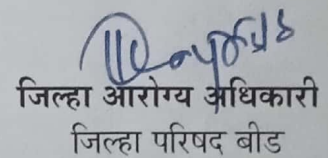 जिल्हा आरोग्य अधिकारी
जिल्हा परिषद बीड